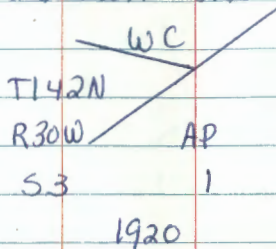 WC
T142N
R30W AP
S3 1
1920